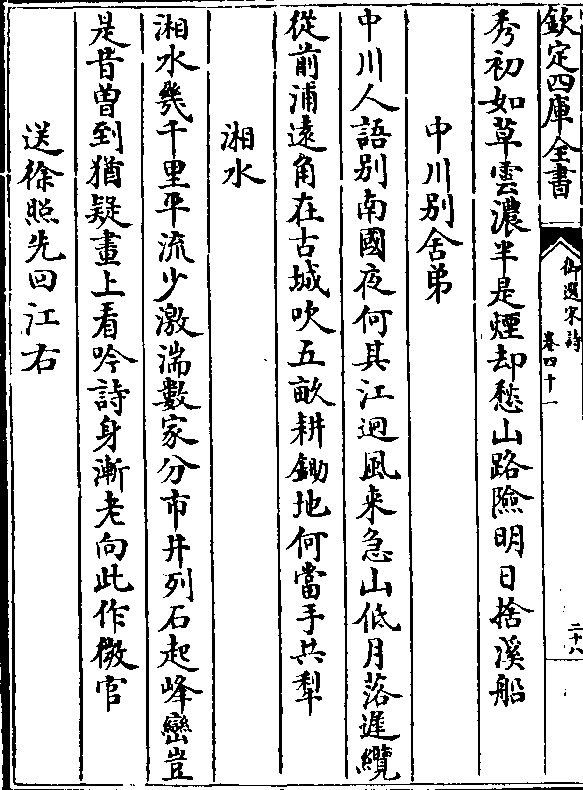 欽定四庫全書
御選宋詩
卷四十一
二十八
秀初如草雲濃半是煙却愁山路險明日捨溪船
中川别舍弟
中川人語别南國夜何其江迥風来急山低月落遲纜
從前浦遠角在古城吹五畝耕鋤地何當手共犁
湘水
湘水幾千里平流少激湍數家分市井列石起峰巒豈
是昔曽到猶疑畫上看吟詩身漸老向此作微官
送徐照先回江右